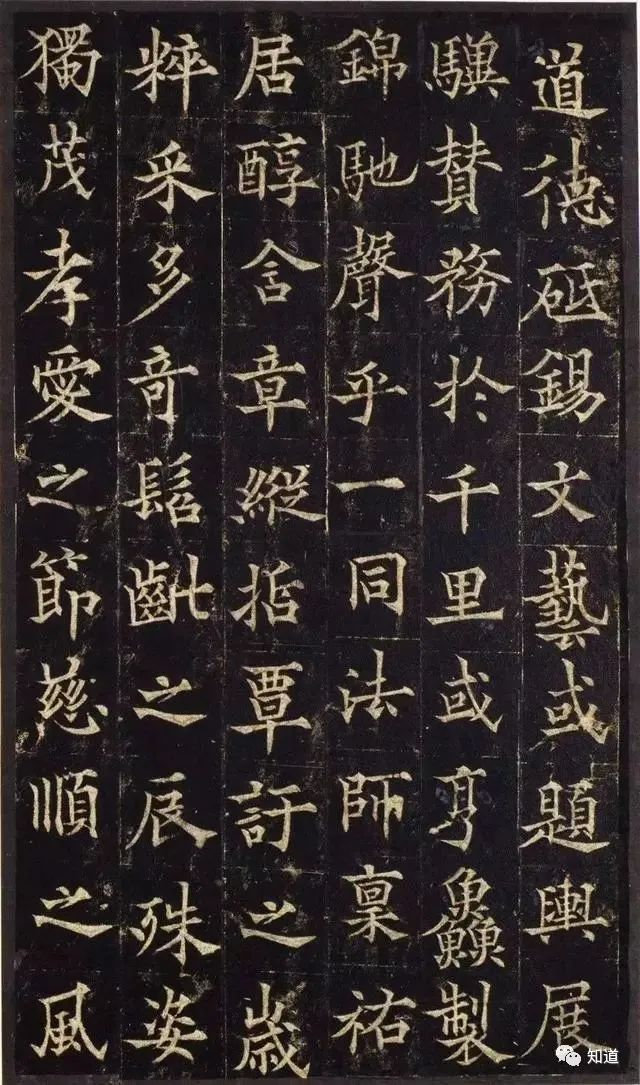 道德砥錫文藝或題輿展
驥贊務於千里或亨鱻製
錦馳聲乎一同法師稟祐
居醇含章縱哲覃訏之歲
粹采多奇髫齔之辰殊姿
獨茂孝愛之節慈順之風
知道